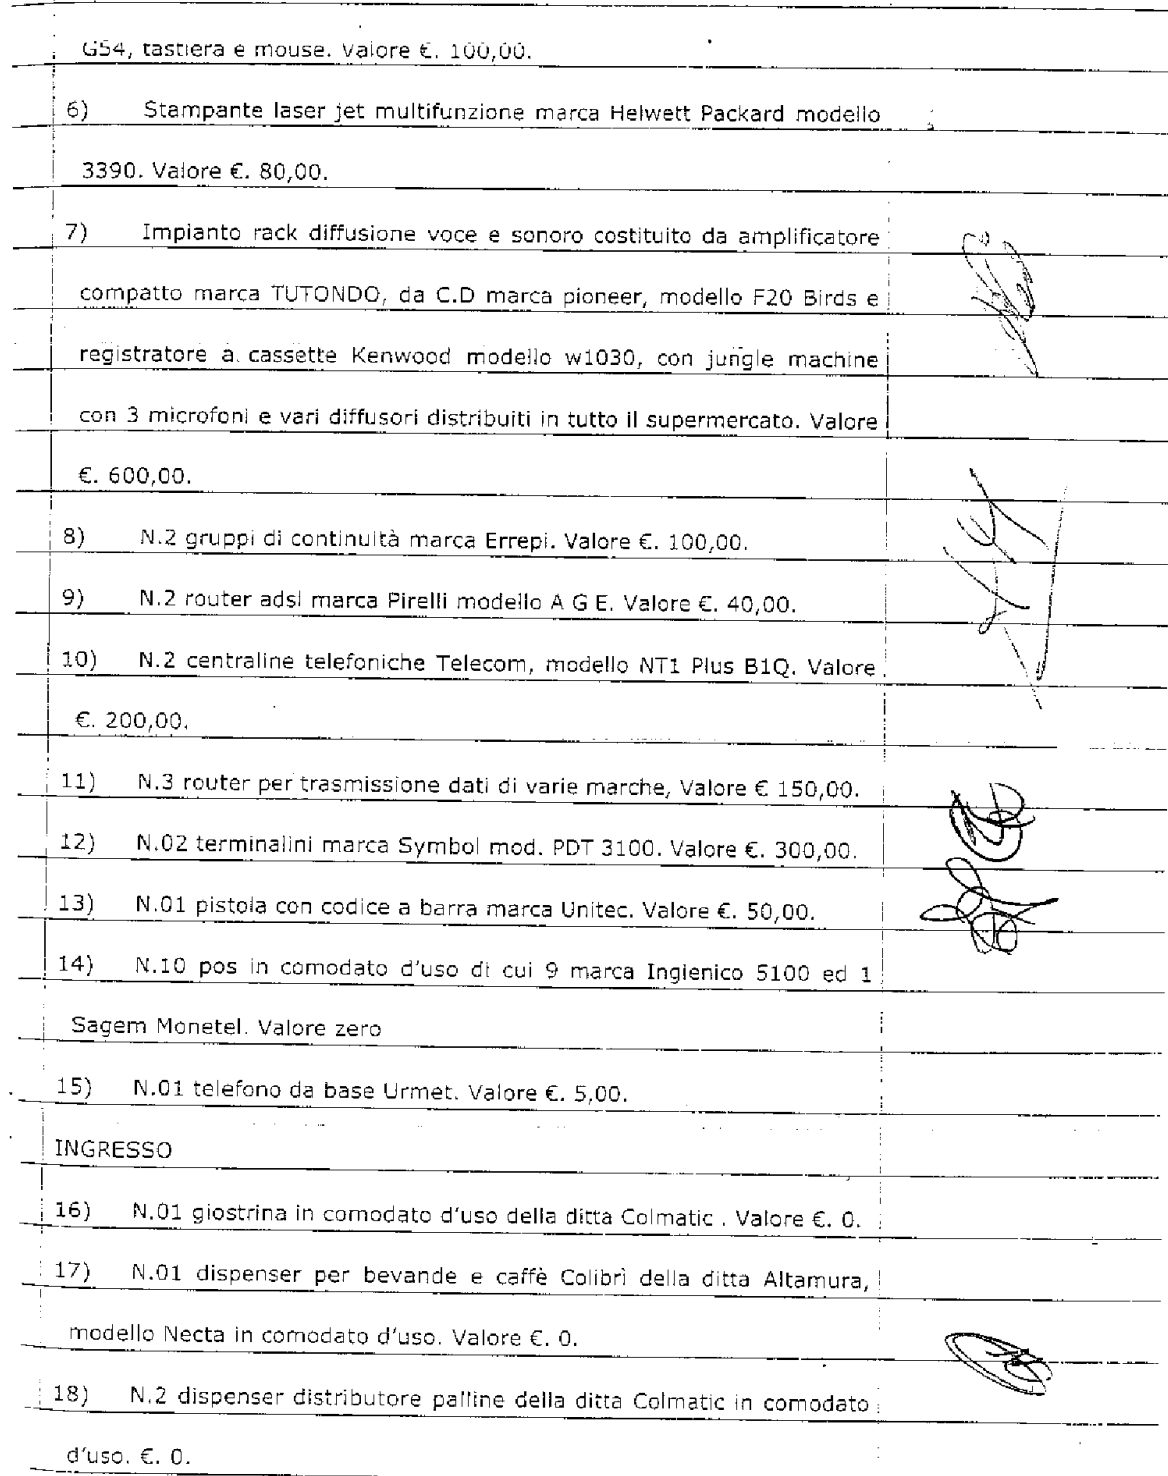 G54, tastiera e mouse. Valore €. 100,00.
6) Stampante laser jet multifunzione marca Helwett Packard modello
3390. Valore €. 80,00.
7) Impianto rack diffusione voce e sonoro costituito da amplificatore
compatto marca TUTONDO, da C.D marca pioneer, modello F20 Birds e
registratore a cassette Kenwood modello w1030, con jungle machine
con 3 microfoni e vari diffusori distribuiti in tutto il supermercato. Valore
€. 600,00.
8) N.2 gruppi di continuità marca Errepi. Valore €. 100,00.
9) N.2 router adsl marca Pirelli modello A G E. Valore €. 40,00.
10) N.2 centraline telefoniche Telecom, modello NT1 Plus B1Q. Valore
€. 200,00.
11) N.3 router per trasmissione dati di varie marche, Valore € 150,00.
12) N.02 terminalini marca Symbol mod. PDT 3100. Valore €. 300,00.
13) N.01 pistola con codice a barra marca Unitec. Valore €. 50,00.
14) N.10 pos in comodato d'uso di cui 9 marca Ingienico 5100 ed 1
Sagem Monetel. Valore zero
15) N.01 telefono da base Urmet. Valore €. 5,00.
INGRESSO
16) N.01 giostrina in comodato d'uso della ditta Colmatic . Valore €. 0.
17) N.01 dispenser per bevande e caffè Colibrì della ditta Altamura,
modello Necta in comodato d'uso. Valore €. 0.
18) N.2 dispenser distributore palline della ditta Colmatic in comodato
d'uso. €. 0.